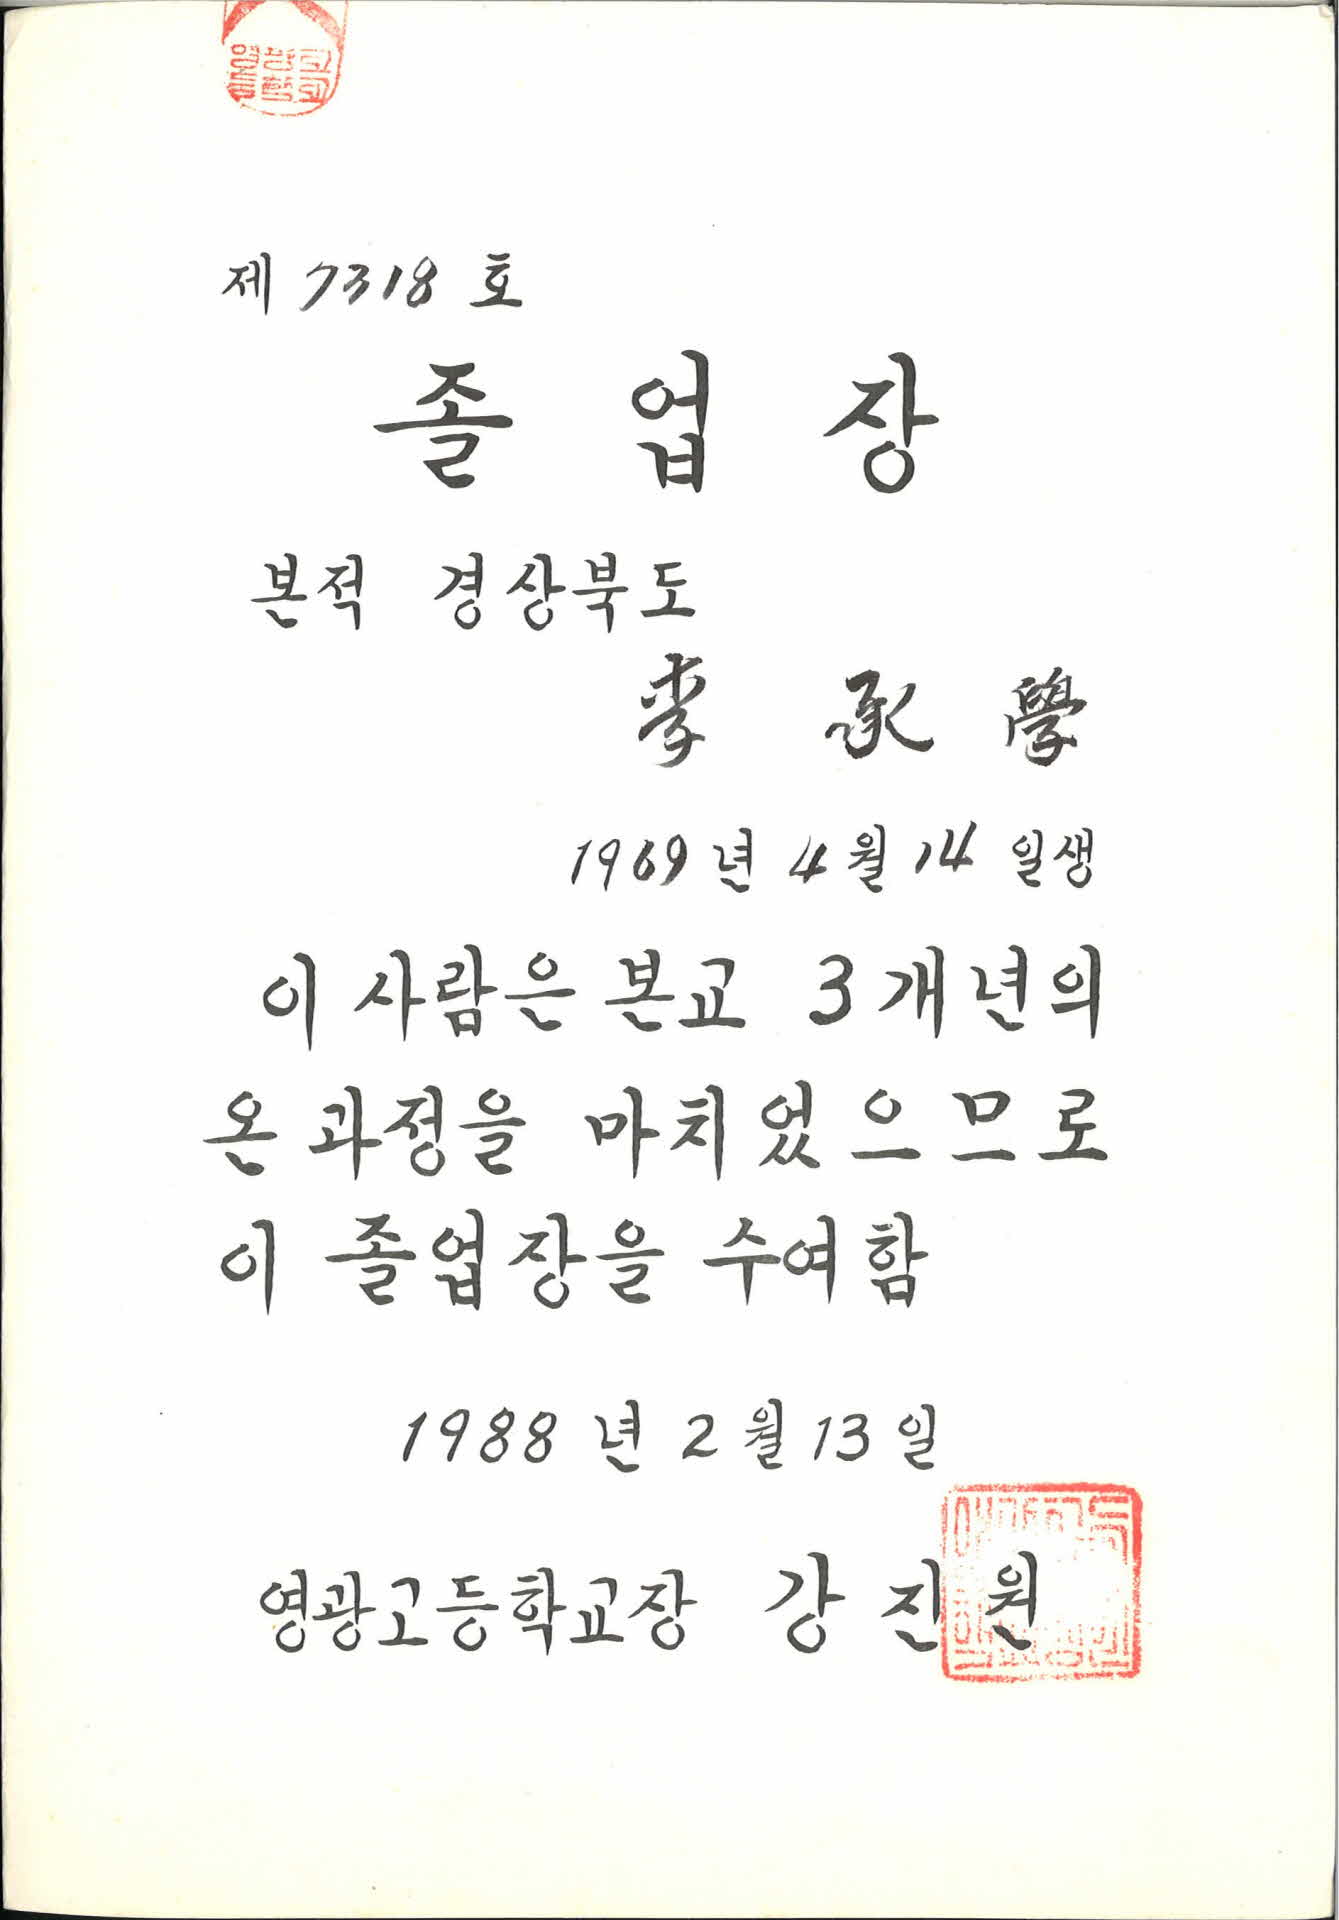 제 7318 호
졸업장
본적 경상북도
李承學
1969년 4월 14일생
이 사람은 본교 3개년의
온 과정을 마치었으므로
이 졸업장을 수여함
1988년 2월 13일
영광고등학교장 강진원